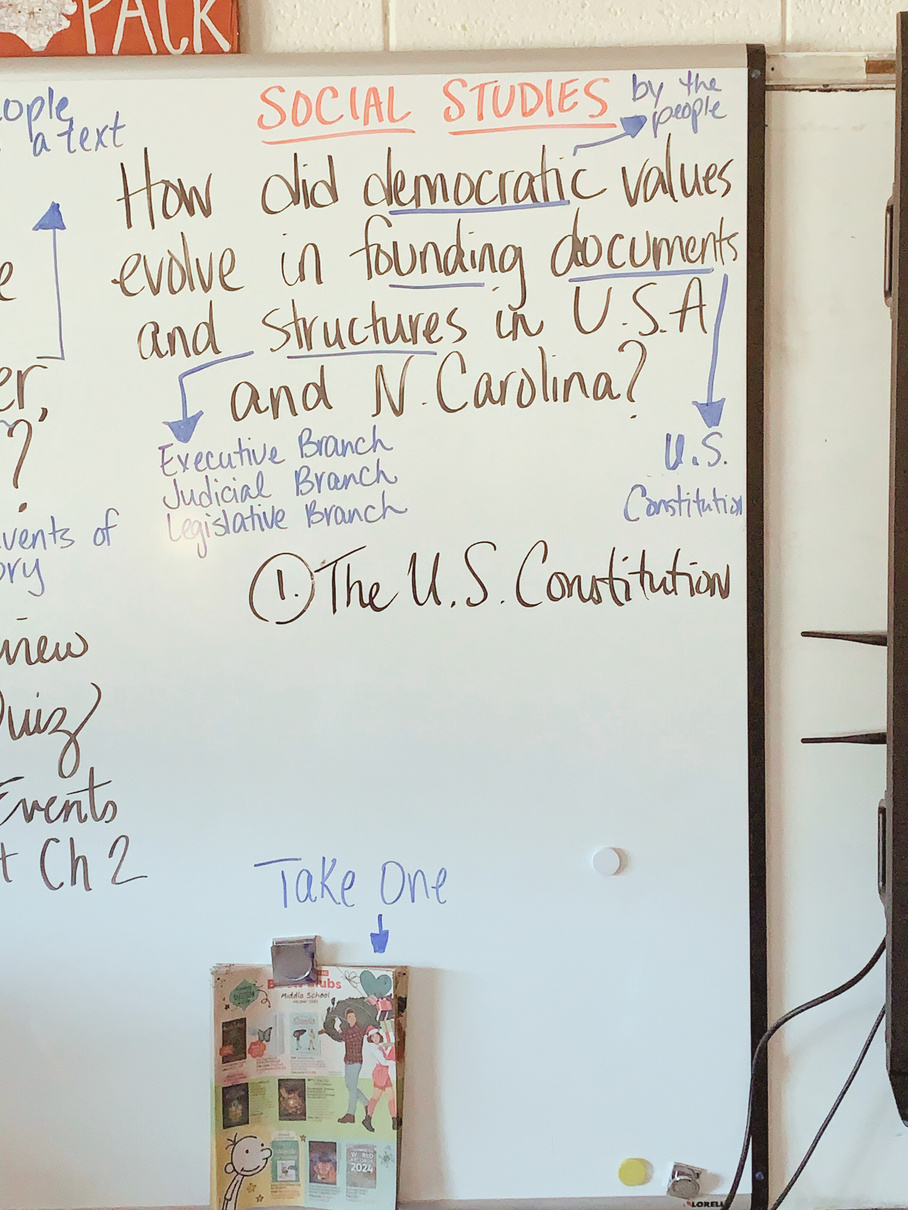 PACK
eople
a text
e
er,
?
vents of
ory
view
Quiz
Events
Ch 2
SOCIAL STUDIES
by the
people
How did democratic values
evolve in founding documents
and structures in U.S.A
and N. Carolina?
Executive Branch
Judicial Branch
Legislative Branch
U.S.
Constitution
1. The U.S. Constitution
Take One
Book Clubs
Middle School
WORLD
RECORDS
2024
LORELL